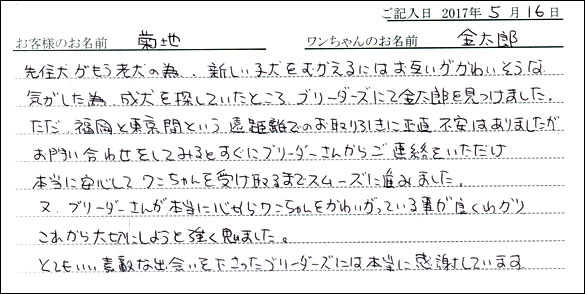 ご記入日 2017年 5 月 16 日
お客様のお名前 菊地 ワンちゃんのお名前 金太郎
先住犬がもう老犬の為、新しい子犬をむかえるにはお互いがかわいそうな
気がした為、成犬を探していたところ、ブリーダーズにて金太郎を見つけました。
ただ、福岡と東京間という遠距離でのお取り引きに正直不安はありましたが
お問い合わせをしてみるとすぐにブリーダーさんからご連絡をいただけ
本当に安心して、ワンちゃんを受け取るまでスムーズに進みました。
又、ブリーダーさんが本当に心からワンちゃんをかわいがっている事が良くわかり
これから大切にしようと強く思いました。
とてもいい素敵な出会いを下さったブリーダーズには本当に感謝しています